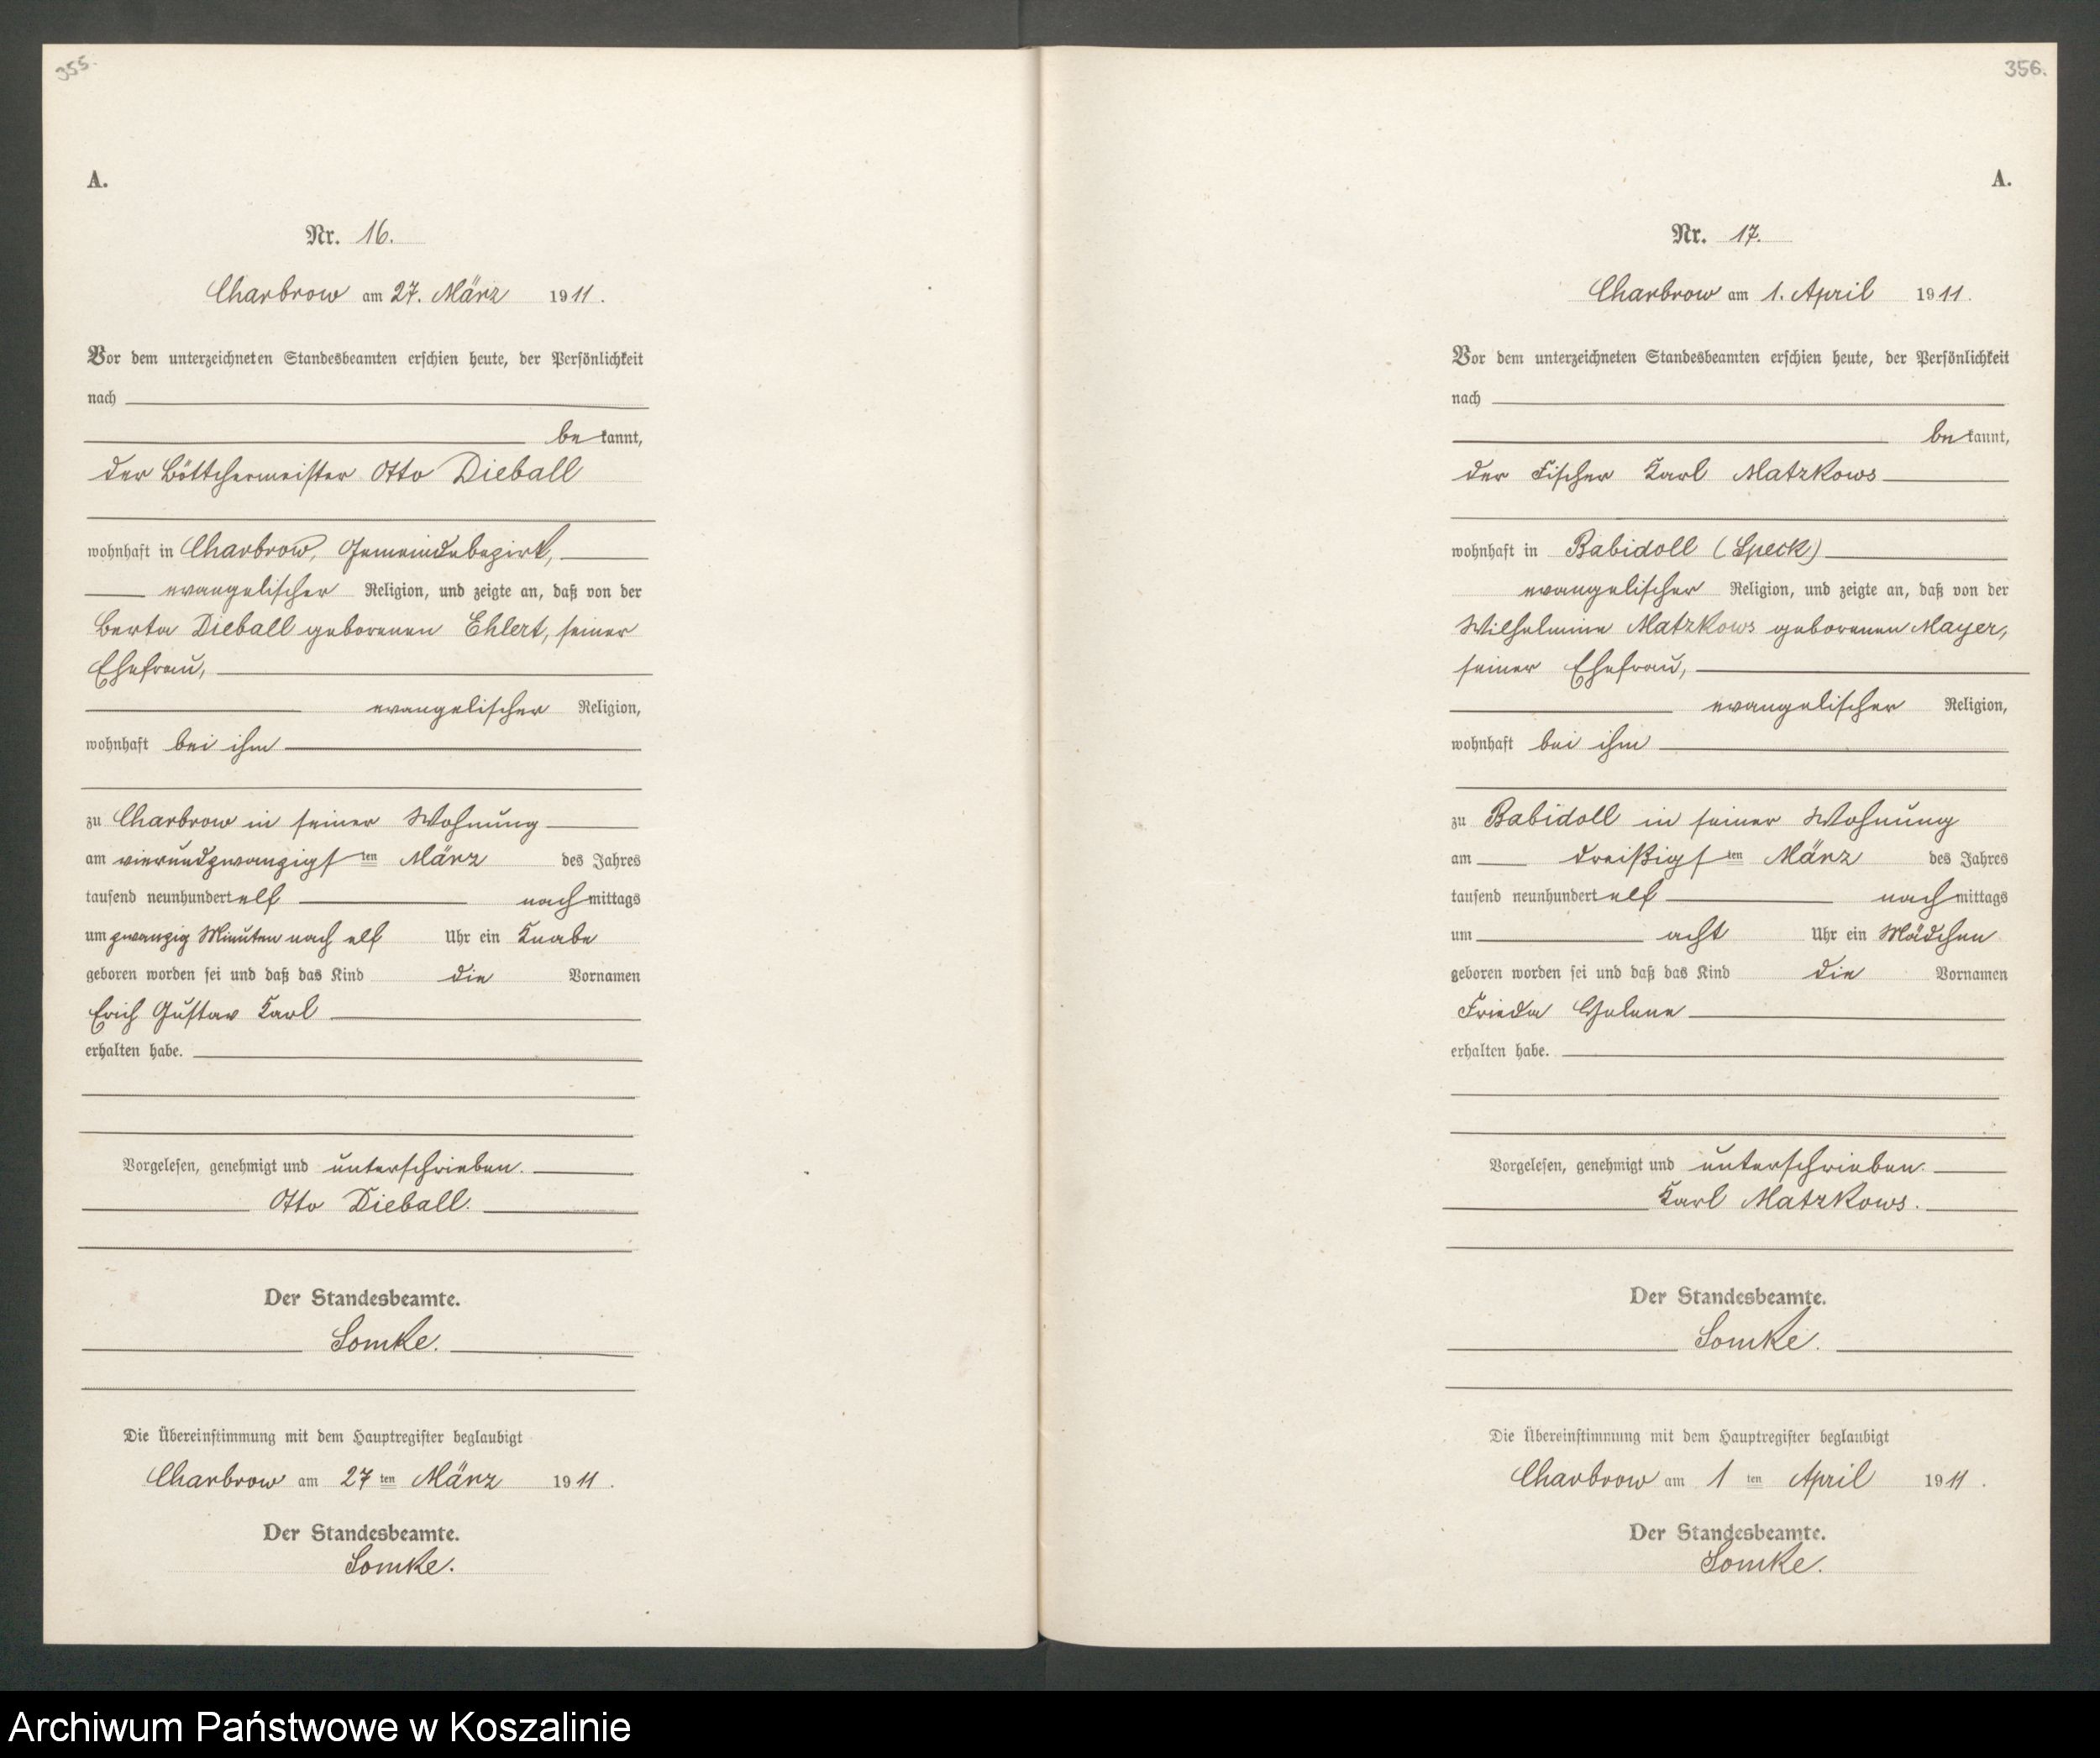 355.
A.
Nr. 16.
Charbrow am 27. März 1911.
Vor dem unterzeichneten Standesbeamten erschien heute, der Persönlichkeit
nach
bekannt,
der Böttchermeister Otto Dieball
wohnhaft in Charbrow, Gemeindebezirk,
evangelischer Religion, und zeigte an, daß von der
Berta Dieball geborenen Ehlert, seiner
Ehefrau,
evangelischer Religion,
wohnhaft bei ihm
zu Charbrow in seiner Wohnung
am vierundzwanzigsten März des Jahres
tausend neunhundert elf nachmittags
um zwanzig Minuten nach elf Uhr ein Knabe
geboren worden sei und daß das Kind die Vornamen
Erich Gustav Karl
erhalten habe.
Vorgelesen, genehmigt und unterschrieben.
Otto Dieball.
Der Standesbeamte.
Somke.
Die Übereinstimmung mit dem Hauptregister beglaubigt
Charbrow am 27ten März 1911.
Der Standesbeamte.
Somke.
356.
A.
Nr. 17.
Charbrow am 1. April 1911.
Vor dem unterzeichneten Standesbeamten erschien heute, der Persönlichkeit
nach
bekannt,
der Fischer Karl Matzkows
wohnhaft in Babidoll (Speck)
evangelischer Religion, und zeigte an, daß von der
Wilhelmine Matzkows geborenen Mayer,
seiner Ehefrau,
evangelischer Religion,
wohnhaft bei ihm
zu Babidoll in seiner Wohnung
am dreißigsten März des Jahres
tausend neunhundert elf nachmittags
um acht Uhr ein Mädchen
geboren worden sei und daß das Kind die Vornamen
Frieda Helene
erhalten habe.
Vorgelesen, genehmigt und unterschrieben.
Karl Matzkows.
Der Standesbeamte.
Somke.
Die Übereinstimmung mit dem Hauptregister beglaubigt
Charbrow am 1ten April 1911.
Der Standesbeamte.
Somke.
Archiwum Państwowe w Koszalinie